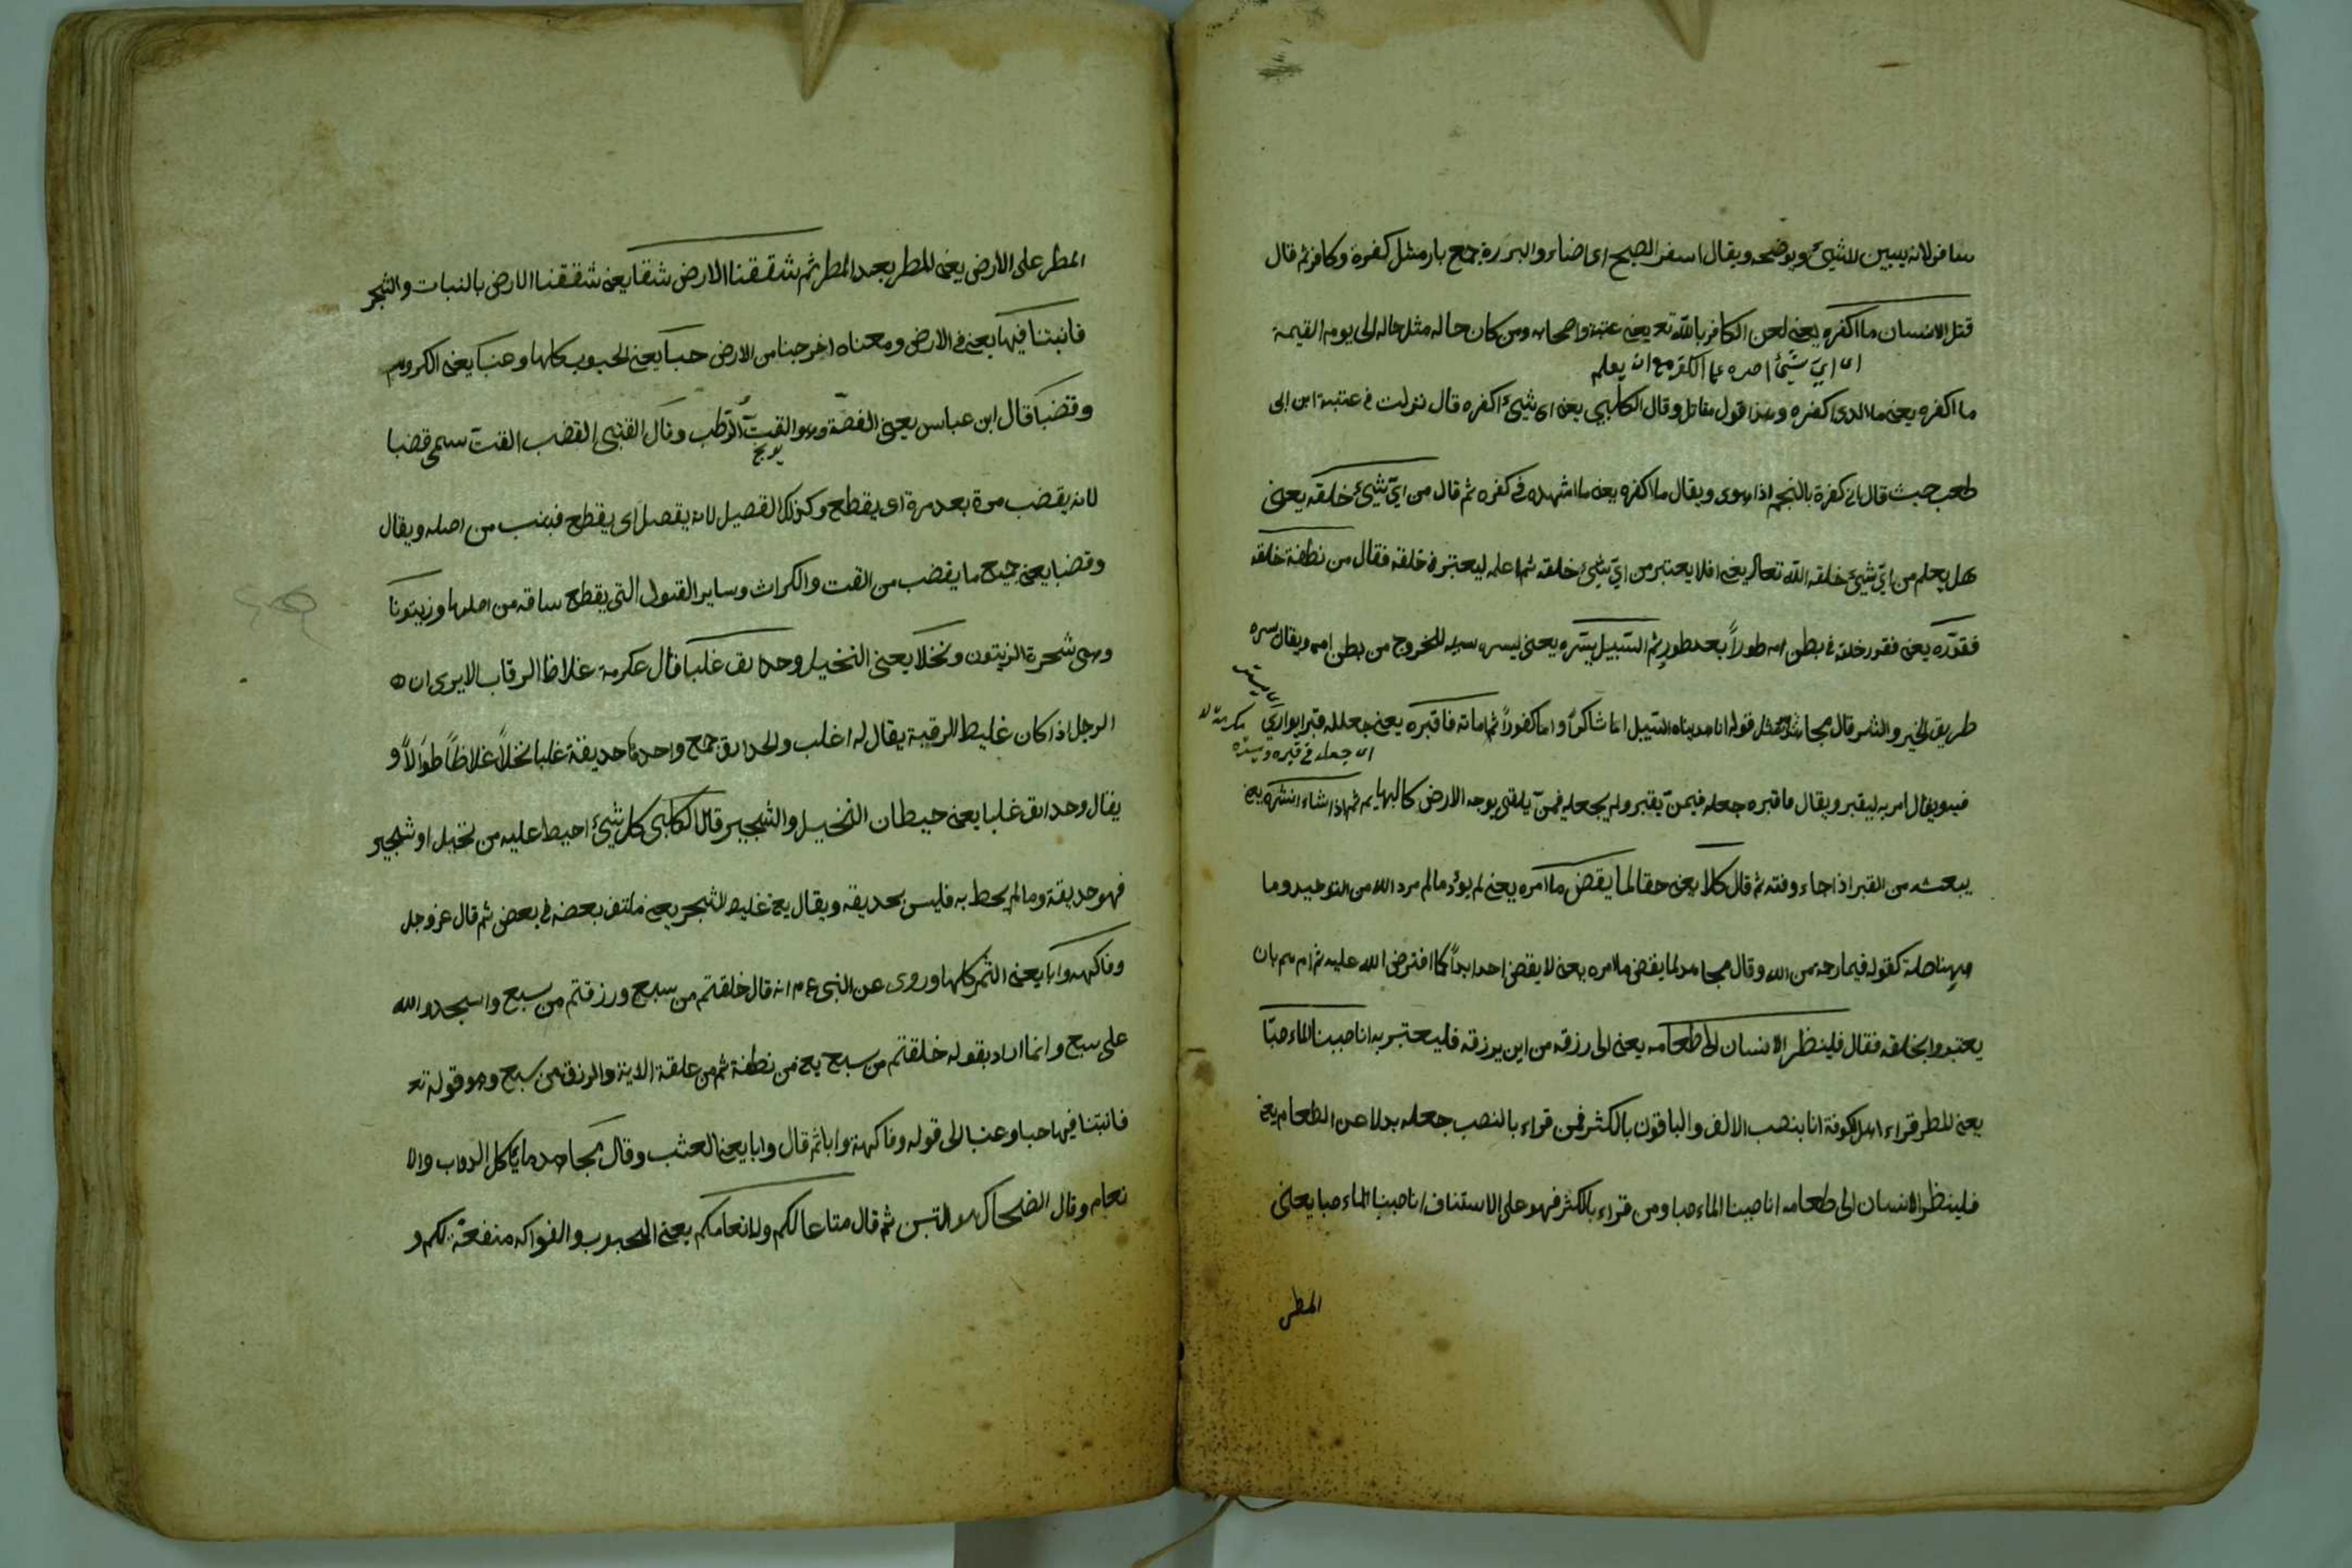 سافر لانه يبين الشيء ويوضحه ويقال اسفر الصبح اى اضاء والبررة جمع بار مثل كفرة وكافر ثم قال
قتل الانسان ما اكفره يعنى لعن الكافر بالله تع يعنى عتبة واصحابه ومن كان حاله مثل حاله الى يوم القيمة
اى اىّ شىء اصره على الكفر مع ان يعلم
ما اكفره يعنى ما الذى اكفره وهذا قول مقاتل وقال الكلبى يعنى اى شىء اكفره قال نزلت فى عتبة ابن ابى
لهب حيث قال انى كفرة بالنجم اذا هوى ويقال ما اكفره يعنى ما اشهده فى كفره ثم قال من اىّ شىء خلقه يعنى
هل يعلم من اىّ شىء خلقه الله تعالى يعنى افلا يعتبر من اىّ شىء خلقه ثم اعلمه ليعتبر فى خلقه فقال من نطفة خلقه
فقدّره يعنى فقدر خلقه فى بطن امه طوراً بعد طور ثم السّبيل يسّره يعنى ليسره سبيله للخروج من بطن امه ويقال يسره
طريق الخير والشر قال مجاهد هو مثل قوله انا هديناه السبيل اما شاكراً واما كفوراً ثم اماته فاقبره يعنى جعل له قبرا يوارى
اى جعله فى قبره وستره
فيه ويقال امر به ليقبر ويقال فاقبره جعله فيمن يقبر ولم يجعله فمن يلقى بوجه الارض كالبهايم ثم اذا شاء انشره يعنى
يبعثه من القبر اذا جاء وقته ثم قال كلا يعنى حقا لما يقض ما امره يعنى لم يؤد ما امره الله من التوحيد وما
ههنا صلة كقوله فبما رحمة من الله وقال مجاهد لما يقض ما امره يعنى لا يقضى احد ابداً كما افترض الله عليه ثم امرهم بان
يعتبروا بخلقه فقال فلينظر الانسان الى طعامه يعنى الى رزقه من اين يرزقه فليعتبر به انا صببنا الماء صبّا
يعنى المطر قراء اهل الكوفة انا بنصب الالف والباقون بالكثر فمن قراء بالنصب جعله بدلا عن الطعام يعنى
فلينظر الانسان الى طعامه انا صببنا الماء صبا ومن قراء بالكثر فهو على الاستيناف انا صببنا الماء صبا يعنى
المطر
المطر على الارض يعنى المطر بعد المطر ثم شققنا الارض شقا يعنى شققنا الارض بالنبات والشجر
فانبتنا فيها يعنى فى الارض ومعناه اخرجنا من الارض حبا يعنى الحبوب كلها وعنبا يعنى الكروم
وقضبا قال ابن عباس يعنى الفصّة وهو القتّ الرّطب وقال القتبى القضب القتّ سمى قضبا
لانه يقضب مرة بعد مرة اى يقطع وكذلك القصيل لانه يقصل اى يقطع فينبت من اصله ويقال
وقضبا يعنى جميع ما يقضب من القت والكراث وساير البقول التى يقطع ساقه من اصلها وزيتونا
وهى شجرة الزيتون ونخلا يعنى النخيل وحدايق غلبا قال عكرمة غلاظ الرقاب الا يرى ان
الرجل اذا كان غليظ الرقبة يقال له اغلب والحدايق جمع واحدها حديقة غلبا نخلاً غلاظاً طوالاً و
يقال وحدايق غلبا يعنى حيطان النخيل والشجير وقال الكلبى كل شىء احيط عليه من نخيل او شجير
فهو حديقة وما لم يحط به فليس بحديقه ويقال يعنى غليظ الشجر يعنى ملتف بعضه فى بعض ثم قال عز وجل
وفاكهة وابا يعنى الثمر كلها وروى عن النبى عم انه قال خلقتم من سبع ورزقتم من سبع واسجدوا لله
على سبع وانما اراد بقوله خلقتم من سبع يعنى من نطفة ثم من علقة الاية والرزق من سبع وهو قوله تع
فانبتنا فيها حبا وعنبا الى قوله وفاكهة وابا ثم قال وابا يعنى العشب وقال مجاهد ما ياكل الدواب والا
نعام وقال الضحاك هو التبن ثم قال متاعا لكم ولانعامكم يعنى الحبوب والفواكه منفعة لكم و